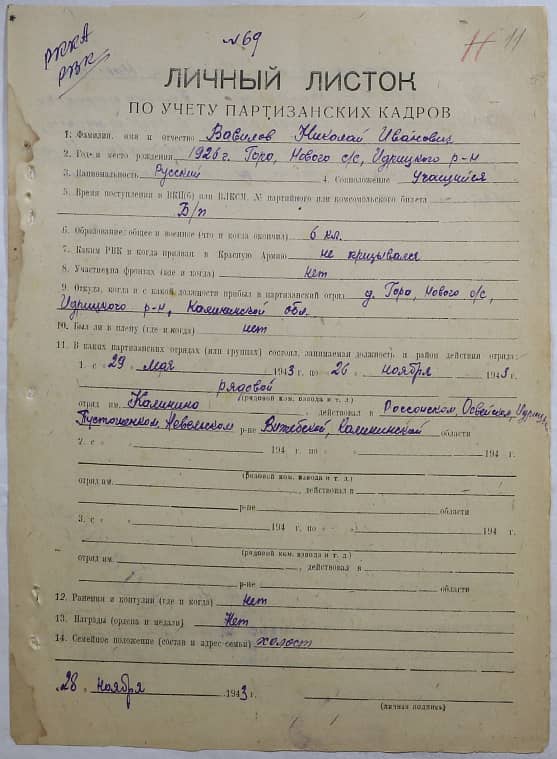 РККА
РВК
№69
11
ЛИЧНЫЙ ЛИСТОК
ПО УЧЕТУ ПАРТИЗАНСКИХ КАДРОВ
1. Фамилия, имя и отчество Вавилов Николай Иванович
2. Год и место рождения 1926 г. Гора, Нового с/с, Идрицкого р-н
3. Национальность Русский 4. Соцположение Учащийся
5. Время поступления в ВКП(б) или ВЛКСМ, № партийного или комсомольского билета
Б/п
6. Образование: общее и военное (что и когда окончил) 6 кл.
7. Каким РВК и когда призван в Красную Армию не призывался
8. Участие на фронтах (где и когда) нет
9. Откуда, когда и с какой должности прибыл в партизанский отряд д. Гора, Нового с/с,
Идрицкого р-н, Калининской обл.
10. Был ли в плену (где и когда) нет
11. В каких партизанских отрядах (или группах) состоял, занимаемая должность и район действия отряда:
1. с „29„ мая 1943 г. по „26„ ноября 1943 г.
рядовой
(рядовой ком. взвода и т. д.)
отряд им. Калинина, действовал в Россонском, Освейском, Идрицком
Пустошенском, Невельском р-не Витебской, Калининской области
2. с „ „ 194 г. по „ „ 194 г.
(рядовой ком. взвода и т. д.)
отряд им. , действовал в
р-не области
3. с „ „ 194 г. по „ „ 194 г.
(рядовой ком. взвода и т. д.)
отряд им. , действовал в
р-не области
12. Ранения и контузии (где и когда) нет
13. Награды (ордена и медали) Нет
14. Семейное положение (состав и адрес семьи) холост
„28„ ноября 1943 г.
(личная подпись)